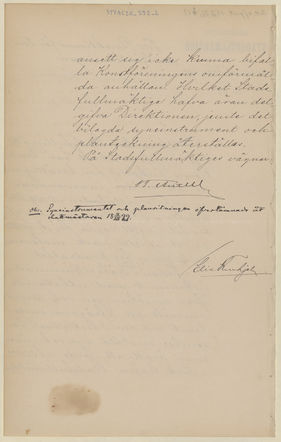 ansett sig icke kunna bifal-
la Konstföreningens omförmäl-
da anhållan. Hvilket Stads-
fullmäktige hafva äran del-
gifva Direktionen, jemte det
bilagda syneinstrument och
plantekning återställas.
På Stadsfullmäktiges vägnar:
Obs. Syneinstrumentet och planritningen öfverlämnade åt